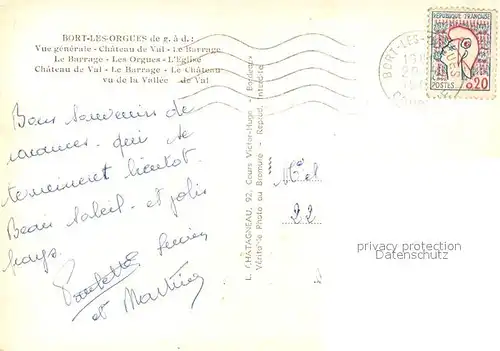 BORT-LES-ORGUES de g. à d. :
Vue générale - Château de Val - Le Barrage
Le Barrage - Les Orgues - L'Eglise
Château de Val - Le Barrage - Le Château
vu de la Vallée de Val
Bons souvenirs de
vacances qui se
terminent bientôt.
Beau soleil et jolis
pays.
Paulette Lucien
et Martine
L. CHATAGNEAU, 92, Cours Victor-Hugo - Bordeaux
Véritable Photo au Bromure - Reprod. Interdite
REPUBLIQUE FRANÇAISE
POSTES 0,20
BORT-LES-ORGUES
22
privacy protection
Datenschutz